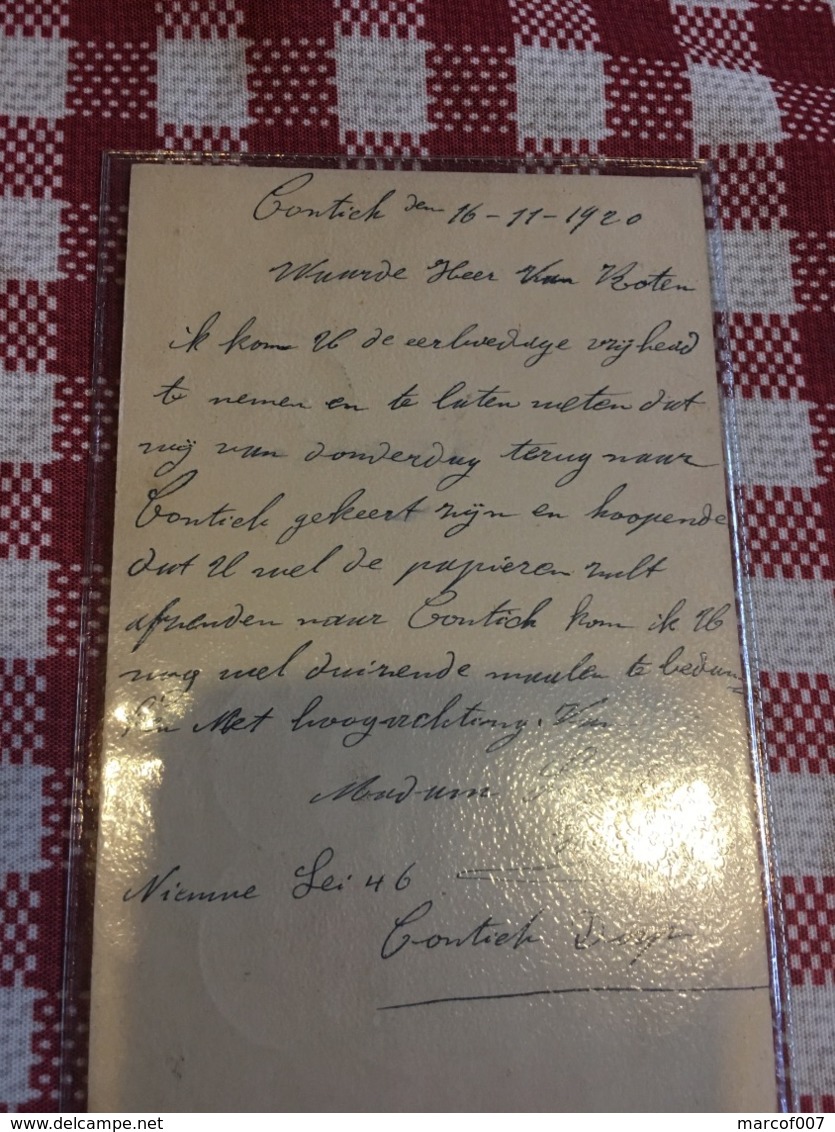 Contich den 16-11-1920
Waarde Heer Van Roten
ik kom U de eerbiedige vrijheid
te nemen en te laten weten dat
wij van donderdag terug naar
Contich gekeert zijn en hoopende
dat U wel de papieren zult
afzenden naar Contich kom ik U
nog wel duizende maalen te bedan
ken Met hoogachting. Van
Madam
Nieuwe Lei 46
Contich Dorp
© marcof007